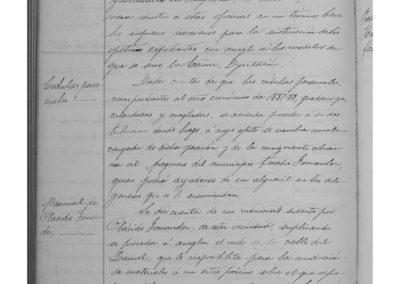 nera remita á estas oficinas en un término breve
los impresos necesarios para la instrucción de los
oportunos expedientes con arreglo á los modelos de
que se sirve la Excma. Diputación.
Cédulas perso-
nales
Dada cuenta de que las cédulas personales,
correspondientes al año económico de 1887-88, quedan ya
extendidas y arregladas, se acuerda proceder á su dis-
tribución desde luego, á cuyo efecto se nombra encar-
gado de dicha y de la consiguiente cobran-
za al pregonero del municipio Emeterio Fernandez,
quien podrá ayudarse de un alguacil en las dili-
gencias que se le encomiendan.
Memorial de
Plácido Fernan-
dez.
Se da cuenta de un memorial suscrito por
Plácido Fernandez, de esta vecindad, suplicando
se proceda á arreglar el suelo de la calle del
Laurel, que le imposibilita para la conducción
de materiales á un sitio próximo sobre el que